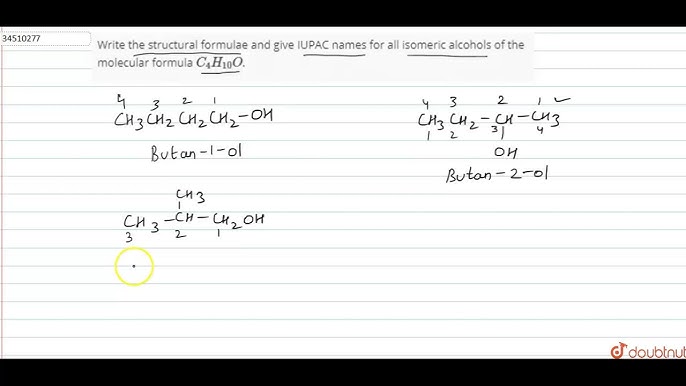 34510277
Write the structural formulae and give IUPAC names for all isomeric alcohols of the
molecular formula C₄H₁₀O.
4 3 2 1
CH₃CH₂CH₂CH₂-OH
Butan-1-ol
4 3 2 1 ✓
CH₃CH₂-CH-CH₃
1 2 3 4
OH
Butan-2-ol
CH₃
CH₃-CH-CH₂OH
3 2 1
doubtnut